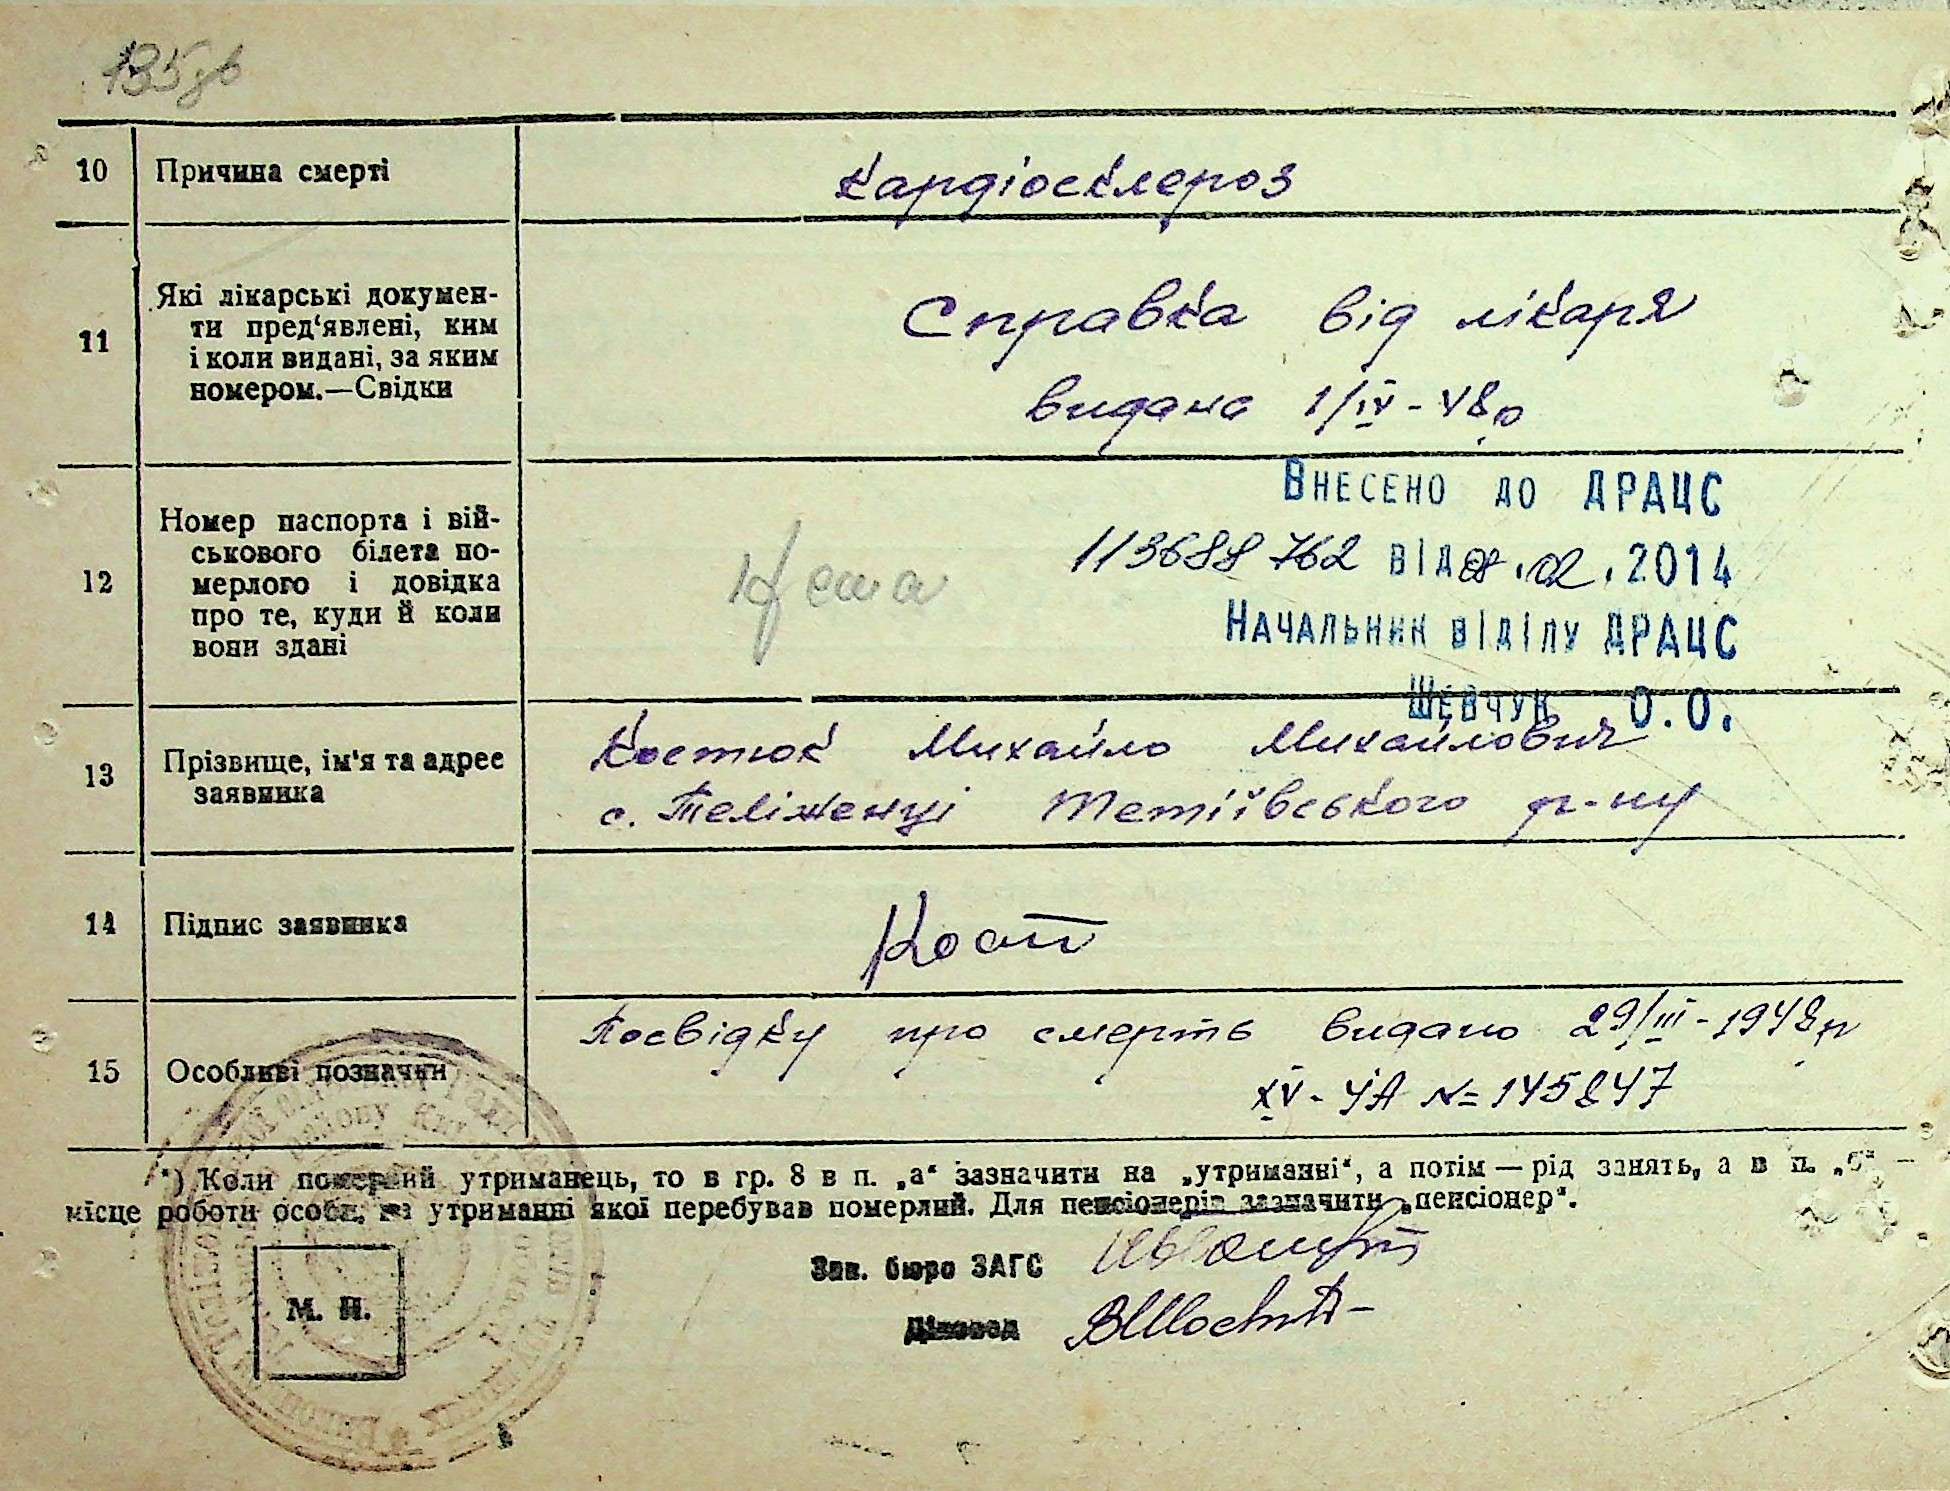 135зв
10 Причина смерті Кардіосклероз
11 Які лікарські докумен-
ти пред‘явлені, ким
і коли видані, за яким
номером.—Свідки
Справка від лікаря
видана 1/IV-48р
12 Номер паспорта і вій-
ськового білета по-
мерлого і довідка
про те, куди й коли
вони здані
Нема
Внесено до ДРАЦС
113688762 від 08.02.2014
Начальник відділу ДРАЦС
Шевчук О.О.
13 Прізвище, ім'я та адрес
заявника
Костюк Михайло Михайлович
с. Теліженці Тетіївського р-ну
14 Підпис заявника Кост
15 Особливі позначки
Посвідку про смерть видано 29/III-1948р
XV-ЧА №=145847
*) Коли померлий утриманець, то в гр. 8 в п. „а“ зазначити на „утриманні“, а потім — рід занять, а в п. „б“ —
місце роботи особи, на утриманні якої перебував померлий. Для пенсіонерів зазначити „пенсіонер“.
Зав. бюро ЗАГС
Діловод
М. П.